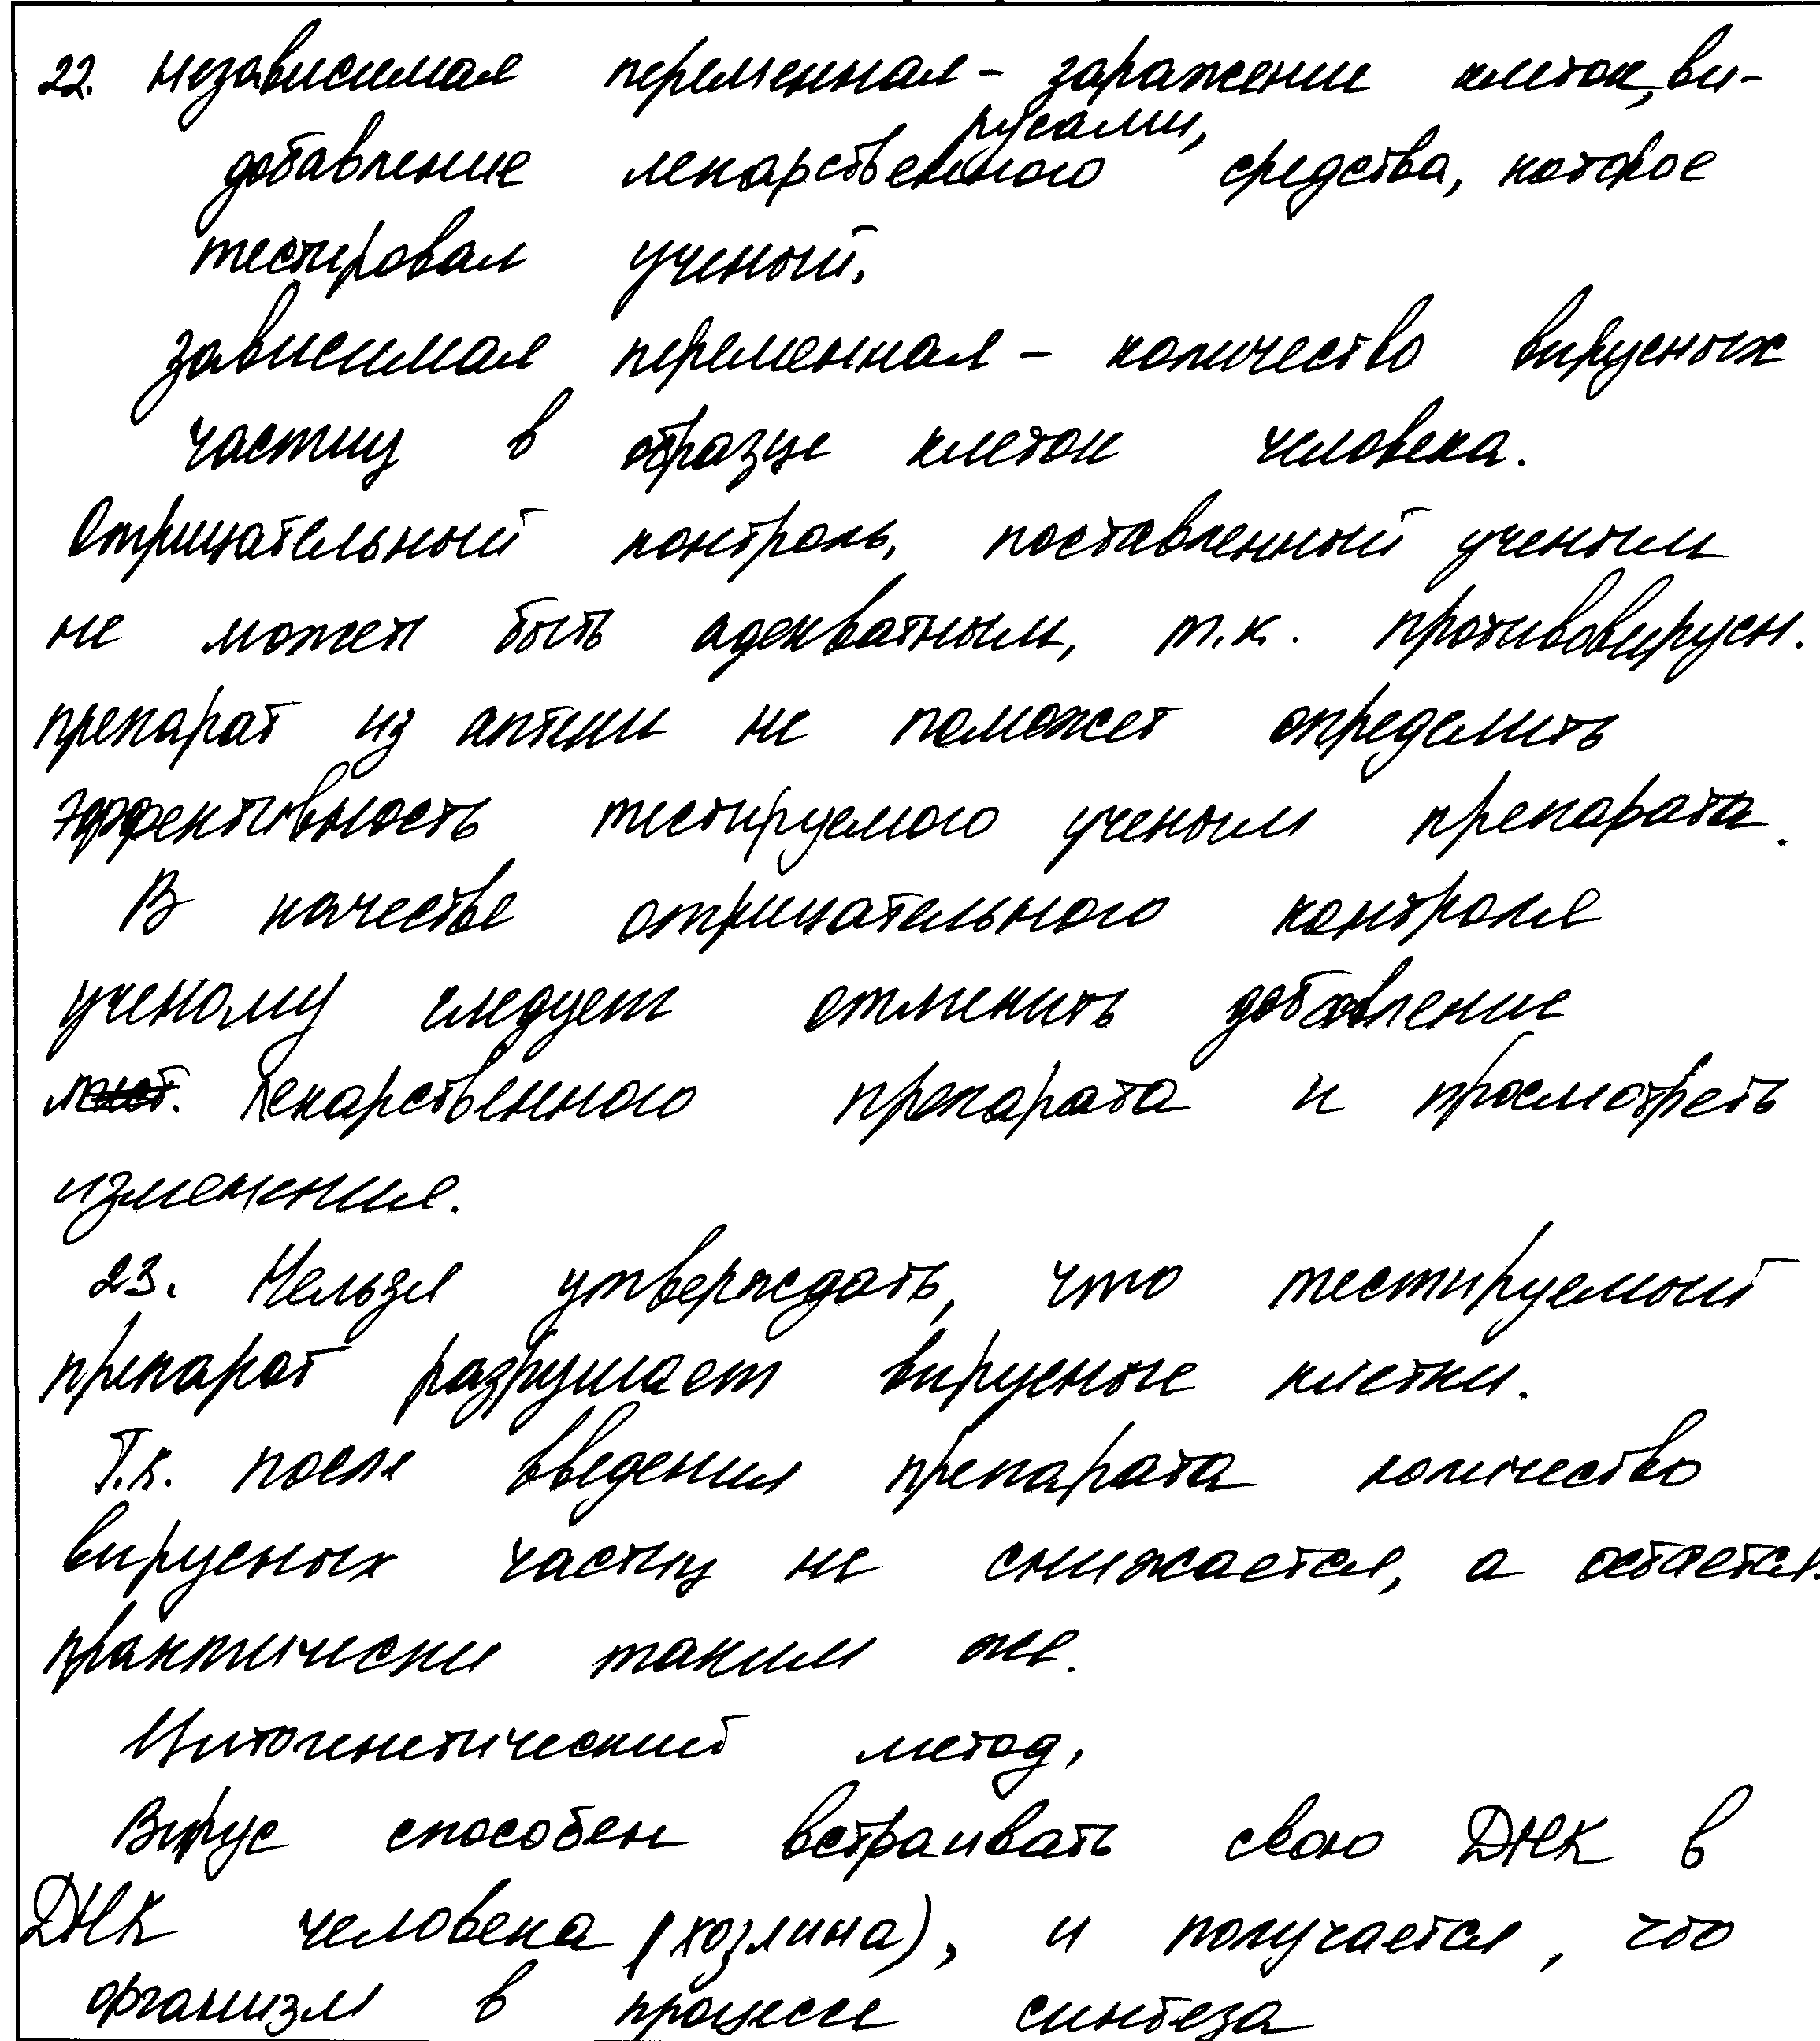 22. Независимая переменная - заражение клеток, ви-
русами,
добавление лекарственного средства, которое
тестировал ученый.
зависимая переменная - количество вирусных
частиц в образце клеток человека.
Отрицательный контроль, поставленный ученым
не может быть адекватным, т.к. противовирусн.
препарат из аптеки не поможет определить
эффективность тестируемого ученым препарата.
В качестве отрицательного контроля
ученому следует отменить добавление
лекарственного препарата и просмотреть
изменения.
23. Нельзя утверждать, что тестируемый
препарат разрушает вирусные клетки.
Т.к. после введения препарата количество
вирусных частиц не снижается, а остается
практически таким же.
Цитогенетический метод.
Вирус способен встраивать свою ДНК в
ДНК человека (хозяина), и получается, что
организм в процессе синтеза